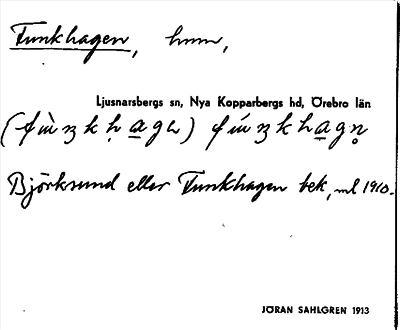 Funkhagen, hmm,
Ljusnarsbergs sn, Nya Kopparbergs hd, Örebro län
Björksund eller Funkhagen bek, ml 1910.
JÖRAN SAHLGREN 1913